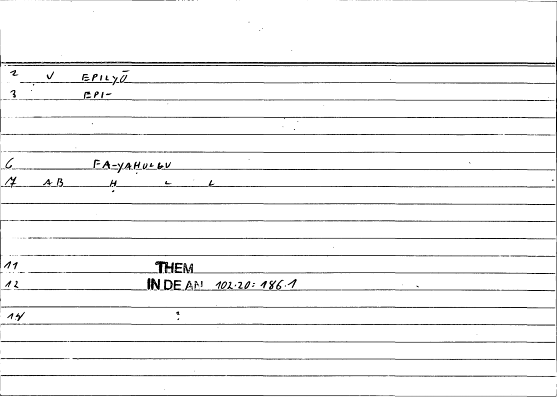 2 V EPILYŪ
3 EPI-
6 FA-YAHULLU
7 AB H L L
11 THEM
12 INDE AN 102.20: 186.1
14 ?